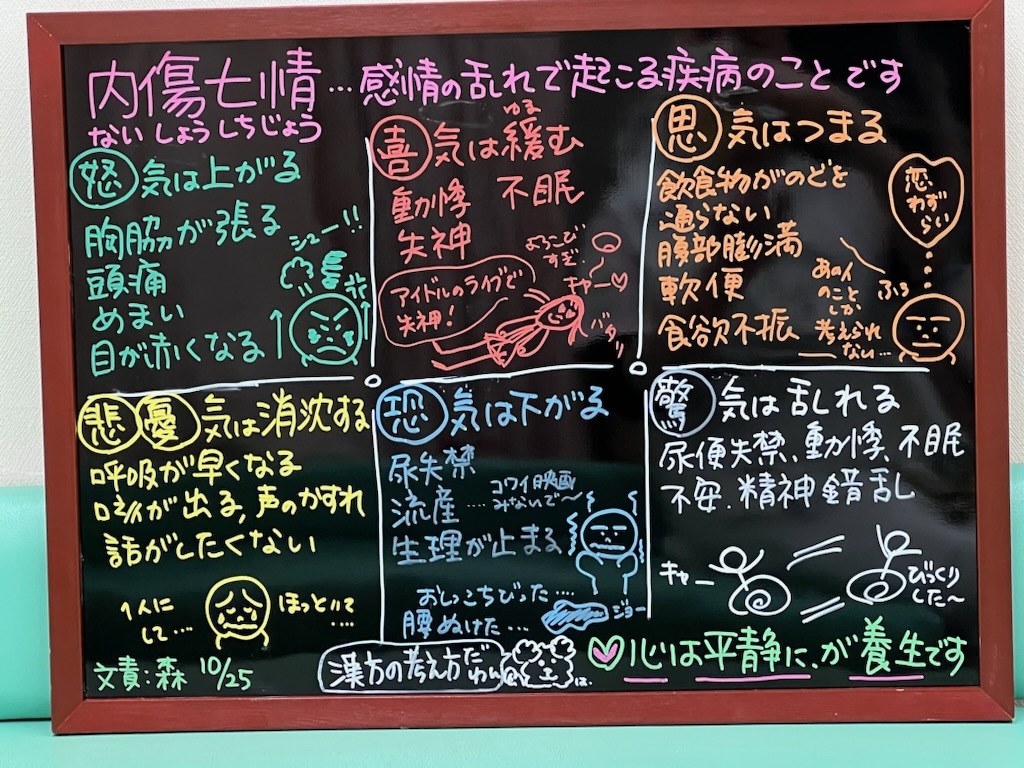 内傷七情…感情の乱れで起こる疾病のことです
ないしょうしちじょう
怒 気は上がる
胸脇が張る
頭痛
めまい
目が赤くなる
シュー!!
喜 気は緩む
ゆる
動悸 不眠
失神
よろこび
すぎ
アイドルのライブで
失神!
キャー♡
バタッ
思 気はつまる
飲食物がのどを
通らない
腹部膨満
軟便
食欲不振
恋
わず
らい
あの人
のこと
しか
考えられ
ない…
ふぅ
悲 憂 気は消沈する
呼吸が早くなる
咳が出る,声のかすれ
話がしたくない
1人に
して…
ほっといて
…
恐 気は下がる
尿失禁
流産
生理が止まる
コワイ映画
みないで〜
おしっこちびった…
腰ぬけた…
ジョー
驚 気は乱れる
尿便失禁、動悸、不眠
不安.精神錯乱
キャー
びっくり
した〜
♡心は平静に、が養生です
文責:森 10/25
漢方の考え方だ
わん